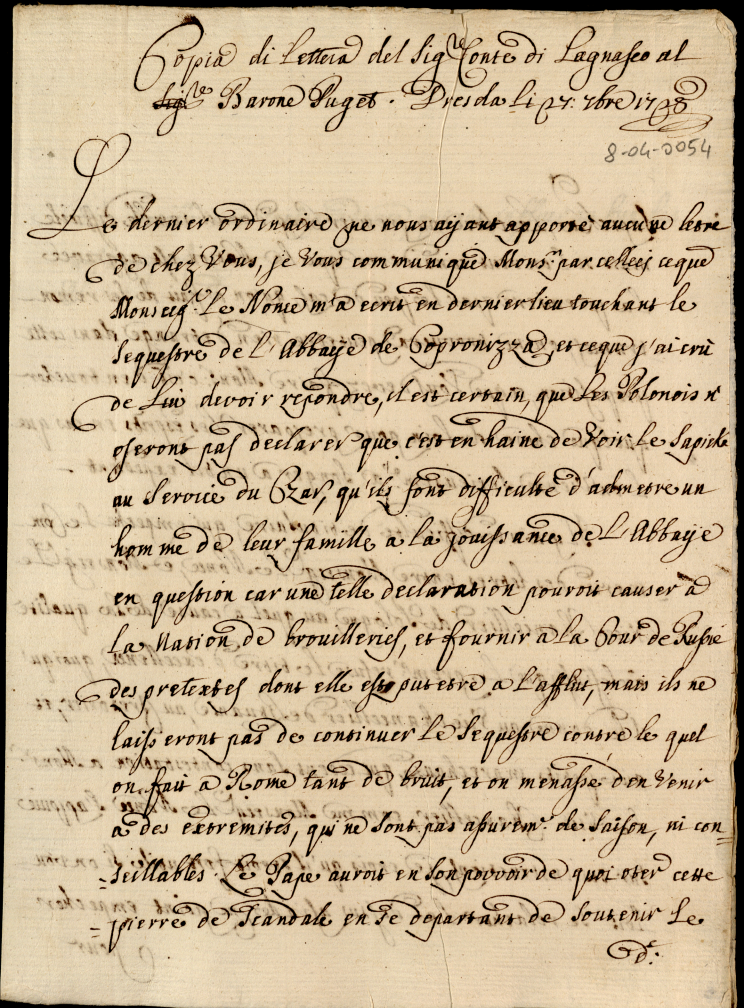 Copia di Lettera del Sig.re Conte di Lagnasco al
Sig.re Barone Puget. Dresda li 17: 7bre 1728
8-04-0054
Le dernier ordinaire ne nous aÿant apporté aucune letre
de chez Vous, je Vous communique Mons.r par cellecÿ ceque
Monseig.r Le Nonce m'a ecrit en dernier lieu touchant le
Sequestre de L'Abbaÿe de Copronizza, et ceque j'ai crû
de Lui devoir repondre, il est certain, que Les Polonois n'
oseront pas declarer que c'est en haine de Voir le Sapieha
au Service du Czar, qu'ils font difficulté d'admetre un
homme de leur famille a la joüissance de L'Abbaÿe
en question car une telle declaration pouroit causer à
La Nation de brouilleries, et fournir a la Cour de Russie
des pretextes dont elle est put etre a L'afflut, mais ils ne
laisseront pas de continuer Le Sequestre contre le quel
on fait a Rome tant de bruit, et on menasse d'en Venir
a des extremités, qui ne sont pas assurem.t de Saison, ni con=
=seillables. Le Pape auroit en son pouvoir de quoi oter cette
=pierre de Scandale en se departant de Soutenir Le